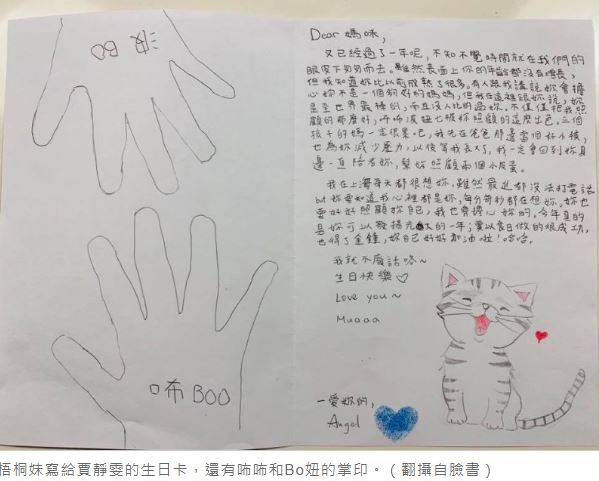 波 BO
咘 BOO
Dear 媽咪,
又已經過了一年呢,不知不覺時間就在我們的
眼皮下匆匆而去。雖然表面上你的年齡都沒有增長,
但我知道妳比以前成熟了很多。有人跟我講說妳會擔
心妳不是一個夠好的媽媽,但我在這裡跟妳說,妳
是全世界最棒的,而且沒人比的過妳。不僅僅把我照
顧的那麼好,咘咘波妞也被妳照顧的這麼出色。三個
孩子的媽一定很累吧,我先在爸爸那邊當個好小孩,
也為妳減少壓力,以後等我長大了,我一定會回到你身
邊一直陪著妳,幫妳照顧兩個小皮蛋。
我在上海每天都很想妳,雖然最近都沒法打電話
but 妳要知道我心裡都是妳,每分每秒都在想妳,妳也
要好好照顧妳自己,我也會擔心妳的。今年真的
是妳可以發揚光大的一年;賈以食日做的很成功,
也得了金鐘,妳自己好好加油啦!哈哈。
我就不廢話咯~
生日快樂♡
Love you~
Muaaa
一愛妳的,
Angel
梧桐妹寫給賈靜雯的生日卡,還有咘咘和Bo妞的掌印。(翻攝自臉書)